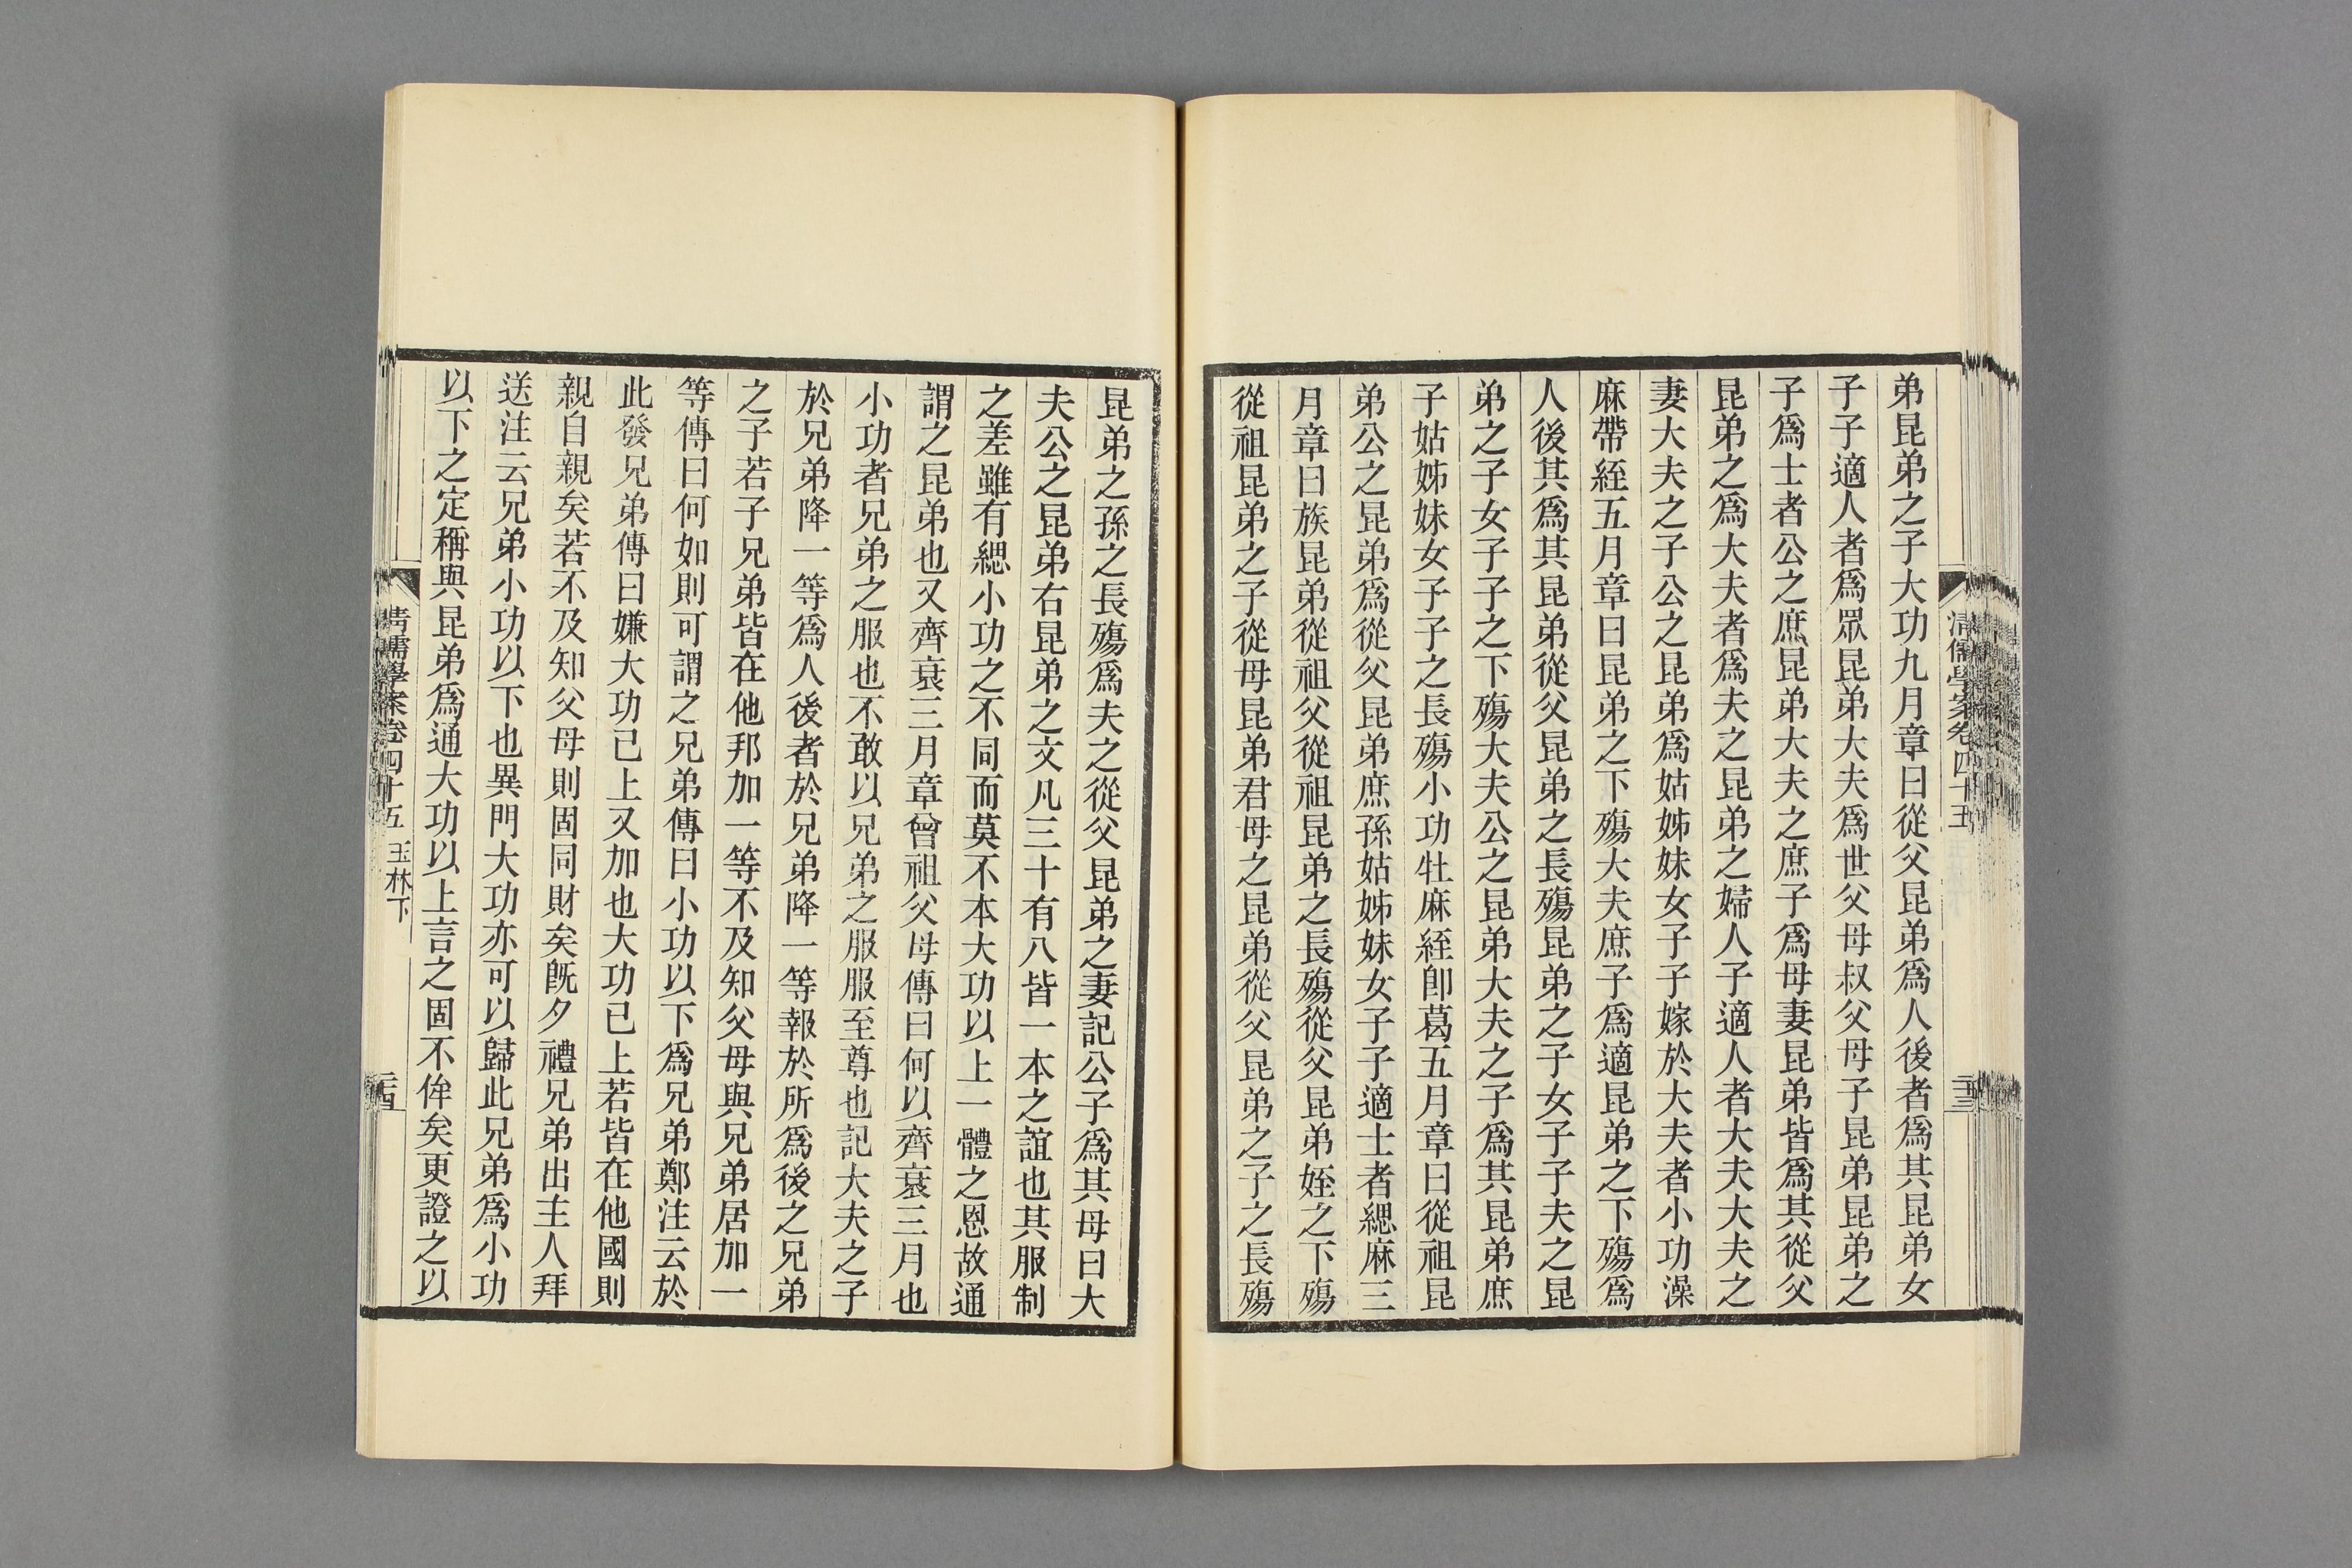 清儒學案卷四十五
弟昆弟之子大功九月章曰從父昆弟爲人後者爲其昆弟女
子子適人者爲眾昆弟大夫爲世父母叔父母子昆弟昆弟之
子爲士者公之庶昆弟大夫之庶子爲母妻昆弟皆爲其從父
昆弟之爲大夫者爲夫之昆弟之婦人子適人者大夫大夫之
妻大夫之子公之昆弟爲姑姊妹女子子嫁於大夫者小功澡
麻帶絰五月章曰昆弟之下殤大夫庶子爲適昆弟之下殤爲
人後其爲其昆弟從父昆弟之長殤昆弟之子女子子夫之昆
弟之子女子子之下殤大夫公之昆弟大夫之子爲其昆弟庶
子姑姊妹女子子之長殤小功牡麻絰卽葛五月章曰從祖昆
弟公之昆弟爲從父昆弟庶孫姑姊妹女子子適士者緦麻三
月章曰族昆弟從祖父從祖昆弟之長殤從父昆弟姪之下殤
從祖昆弟之子從母昆弟君母之昆弟從父昆弟之子之長殤
昆弟之孫之長殤爲夫之從父昆弟之妻記公子爲其母曰大
夫公之昆弟右昆弟之文凡三十有八皆一本之誼也其服制
之差雖有緦小功之不同而莫不本大功以上一體之恩故通
謂之昆弟也又齊衰三月章曾祖父母傳曰何以齊衰三月也
小功者兄弟之服也不敢以兄弟之服服至尊也記大夫之子
於兄弟降一等爲人後者於兄弟降一等報於所爲後之兄弟
之子若子兄弟皆在他邦加一等不及知父母與兄弟居加一
等傳曰何如則可謂之兄弟傳曰小功以下爲兄弟鄭注云於
此發兄弟傳曰嫌大功已上又加也大功已上若皆在他國則
親自親矣若不及知父母則固同財矣旣夕禮兄弟出主人拜
送注云兄弟小功以下也異門大功亦可以歸此兄弟爲小功
以下之定稱與昆弟爲通大功以上言之固不侔矣更證之以
清儒學案卷四十五 玉林下